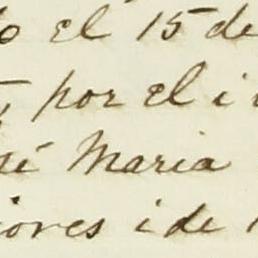 el 15 de
por el i
Maria
iores i de